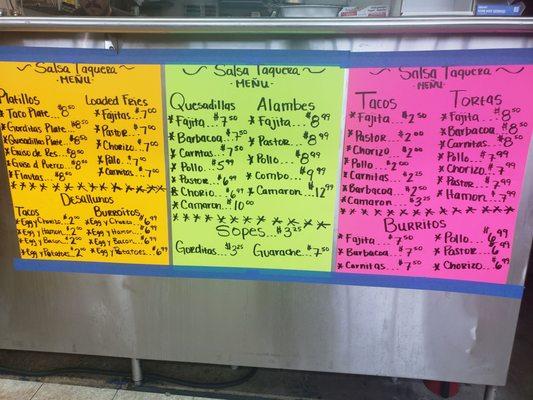 ~Salsa Taquera~
MENU
Platillos
*Taco Plate..$8.50
*Gorditas Plate..$8.50
*Quesadilla Plate..$8.50
*Guiso de Res...$8.50
*Guiso d Puerco..$8.50
*Flautas...$8.50
Loaded Fries
*Fajitas..$7.00
*Pastor..$7.00
*Chorizo..$7.00
*Pollo..$7.00
*Carnitas..$7.00
Desallunos
Tacos
*Egg y Chorizo.$2.00
*Egg y Hamon.$2.00
*Egg y Bacon..$2.00
*Egg y Potatoes.$2.00
Burroitos
*Egg y Chorizo..$6.99
*Egg y Hamon..$6.99
*Egg y Bacon..$6.99
*Egg y Potatoes..$6.99
~Salsa Taquera~
·MENU·
Quesadillas
*Fajita..$7.50
*Barbacoa..$7.50
*Carnitas..$7.50
*Pollo..$5.99
*Pastor...$6.99
*Chorio..$6.99
*Camaron..$10.00
Alambes
*Fajita..$8.99
*Pastor...$8.99
*Pollo...$8.99
*Combo...$9.99
*Camaron..$12.99
Sopes...$3.25
Gorditas..$3.25
Guarache..$7.50
~Salsa Taquera~
MENU
Tacos
*Fajita..$2.50
*Pastor..$2.00
*Chorizo..$2.00
*Pollo..$2.00
*Carnitas..$2.25
*Barbacoa..$2.50
*Camaron...$3.25
Tortas
*Fajitas...$8.50
*Barbacoa..$8.50
*Carnitas..$8.50
*Pollo...$7.99
*Chorizo..$7.99
*Pastor...$7.99
*Hamon..$7.99
Burritos
*Fajita...$7.50
*Barbacoa..$7.50
*Carnitas...$7.50
*Pollo...$6.99
*Pastor...$6.99
*Chorizo..$6.99